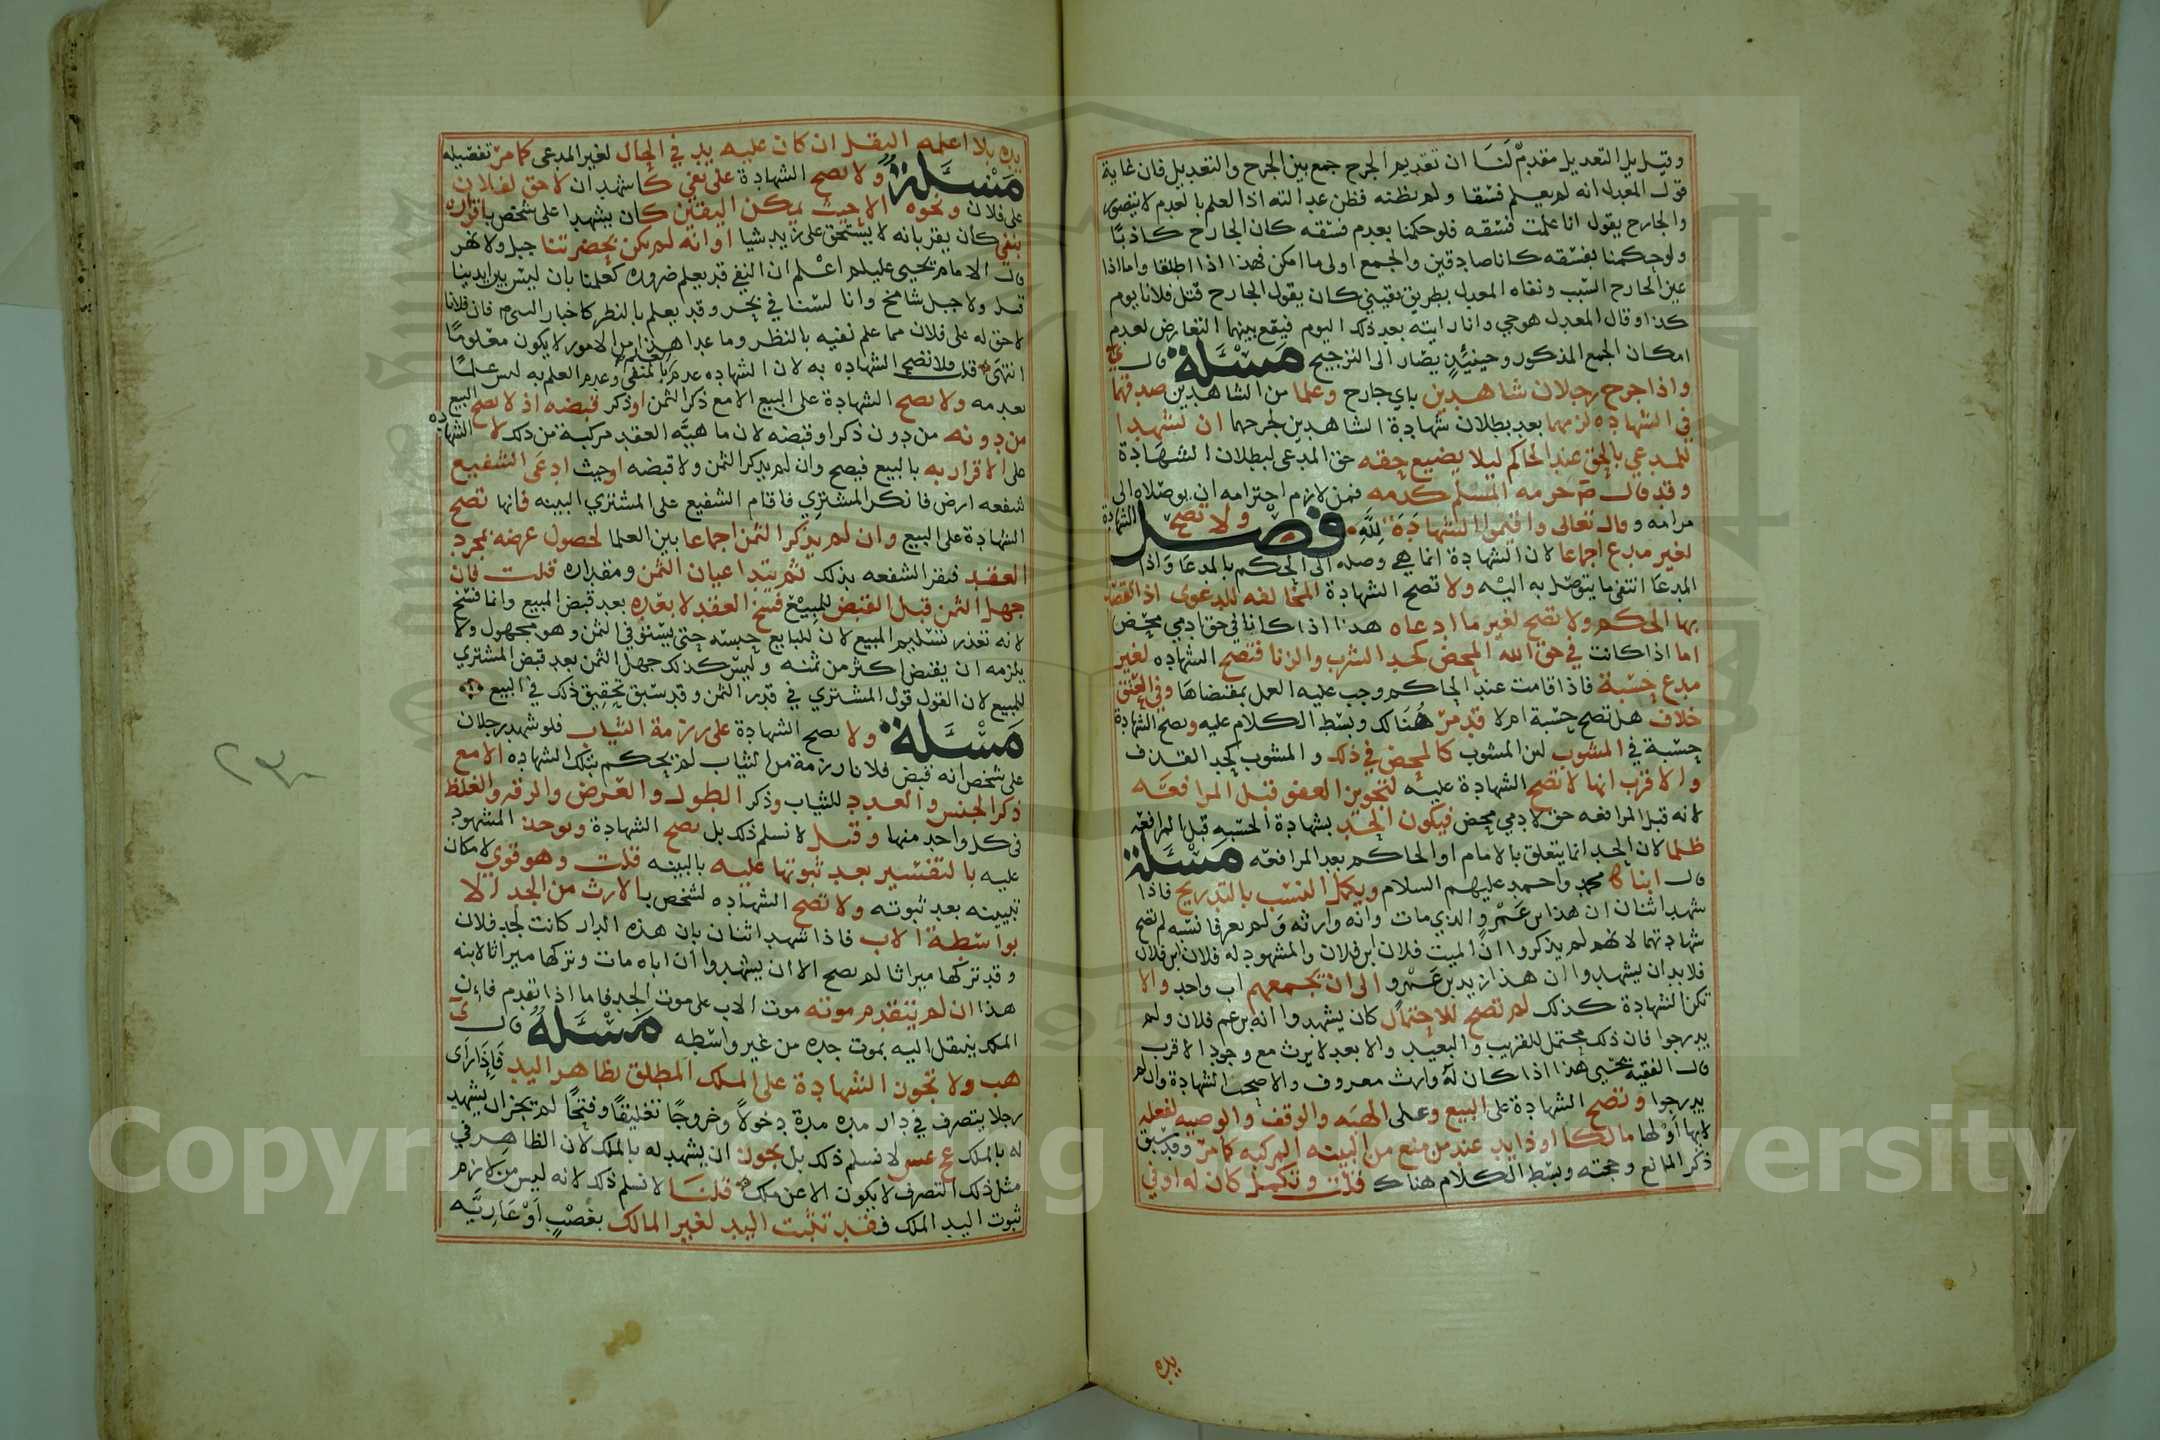 وقيل بل التعديل مقدم لنا ان تقديم الجرح جمع بين الجرح والتعديل فان غاية
قول المعدل انه لم يعلم فسقا ولم يظنه فظن عدالته اذ العلم بالعدم لا يتصور
والجارح يقول انا علمت فسقه فلو حكمنا بعدم فسقه كان الجارح كاذبا
ولو حكمنا بفسقه كانا صادقين والجمع اولى ما امكن فهذا اذا اطلقا واما اذا
عين الجارح السبب ونفاه المعدل بطريق يقيني كان يقول الجارح قتل فلانا يوم
كذا وقال المعدل هو حي وانا رايته بعد ذلك اليوم فيقع بينهما التعارض لعدم
امكان الجمع المذكور وحينئذ يصار الى الترجيح مسئلة قال ي
واذا جرح رجلان شاهدين باي جارح وعلما من الشاهدين صدقهما
في الشهاده لزمهما بعد بطلان شهادة الشاهدين لجرحهما ان يشهدا
للمدعي بالحق عند الحاكم ليلا يضيع حقه حق المدعى لبطلان الشهادة
وقد قال صم حرمه المسلم كدمه فمن لازم احترامه ان يوصلاه الى
مرامه وقال تعالى واقيموا الشهادة لله فصل ولا تصح الشهادة
لغير مدع اجماعا لان الشهادة انما هي وصله الى الحكم بالمدعا واذا
المدعا انتفى ما يتوصل به اليه ولا تصح الشهادة المخالفه للدعوى اذ القصد
بها الحكم ولا تصح لغير ما ادعاه هذا اذا كانا في حق ادمي محض
اما اذا كانت في حق الله المحض كحد الشرب والزنا فتصح الشهاده لغير
مدع حسبة فاذا قامت عند الحاكم وجب عليه العمل بمقتضاها وفي العتق
خلاف هل تصح حسبة ام لا قد مر هنالك وبسط الكلام عليه وتصح الشهادة
حسبة في المشوب لان المشوب كالمحض في ذلك والمشوب كحد القذف
والاقرب انها لا تصح الشهادة عليه لتجويز العفو قبل المرافعه
لانه قبل المرافعه حق لادمي محض فيكون الحد بشهادة الحسبه قبل المرافعه
ظلما لان الحد انما يتعلق بالامام او الحاكم بعد المرافعه مسئلة
قال ابنا محمد واحمد عليهم السلام ويكمل النسب بالتدريج فاذا
شهد اثنان ان هذا بن عم والذي مات وانه وارثه ولم يعرفا نسبه لم تصح
شهادتهما لانهم لم يذكروا ان الميت فلان ابن فلان والمشهود له فلان ابن فلان
فلا بد ان يشهدوا ان هذا زيد بن عمرو الى ان تجمعهم اب واحد والا
تكن الشهادة كذلك لم تصح للاحتمال كان يشهدوا انه بن عم فلان ولم
يدرجوا فان ذلك محتمل للقريب والبعيد والابعد لا يرث مع وجود الاقرب
قال الفقيه يحيى هذا اذا كان له وارث معروف والا صحت الشهادة وان لم
يدرجوا وتصح الشهادة على البيع وعلى الهبه والوقف والوصيه لفعله
لابها او لها مالكا او ذا يد عند من منع من البينه المركبه كما مر وقد سبق
ذكر المانع وحجته وبسط الكلام هناك قلت وتكمل كان له او في
يده
يده بلا اعلمه انتقل ان كان عليه يد في الحال لغير المدعى كما مر تفصيله
مسئلة ولا تصح الشهادة على نفي كاشهد ان لا حق لفلان
على فلان ونحوه الا حيث يمكن اليقين كان يشهدا على شخص باقراره
بنفي كان يقر بانه لا يستحق على زيد شيا او انه لم يكن بحضرتنا جبل ولا نهر
قال الامام يحيى عليلم اعلم ان النفي قد يعلم ضروره كعلمنا بان ليس بين ايدينا
فيل ولا جبل شامخ وانا لسنا في بحر وقد يعلم بالنظر كاخبار النبي صم فان فلانا
لا حق له على فلان مما علم نفيه بالنظر وما عدا هذا من الامور لا يكون معلوما
انتهى قلت فلا تصح الشهاده به لان الشهاده عدم العلم بالمنفي وعدم العلم به ليس علما
بعدمه ولا تصح الشهادة على البيع الا مع ذكر الثمن او ذكر قبضه اذ لا يصح البيع
من دونه من دون ذكر او قبضه لان ماهيه العقد مركبة من ذلك لا الشهادة
على الاقرار به بالبيع فيصح وان لم يذكر الثمن ولا قبضه او حيث ادعى الشفيع
شفعه ارض فانكر المشتري فاقام الشفيع على المشتري البينه فانها تصح
الشهادة على البيع وان لم يذكر الثمن اجماعا بين العلما لحصول غرضه بمجرد
العقد فيقر الشفعه بذلك ثم يتداعيان الثمن ومقداره قلت فان
جهل الثمن قبل القبض للمبيع فسخ العقد لا بعده بعد قبض المبيع وانما فسخ
لانه تعذر تسليم المبيع لان للبايع حبسه حتى يستوفي الثمن وهو مجهول ولا
يلزمه ان يقبض اكثر من ثمنه وليس كذلك جهل الثمن بعد قبض المشتري
للمبيع لان القول قول المشتري في قدر الثمن وقد سبق تحقيق ذلك في البيع
مسئلة ولا تصح الشهادة على رزمة الثياب فلو شهد رجلان
على شخص انه قبض فلانا رزمة من الثياب لم يحكم بتلك الشهاده الا مع
ذكر الجنس والعدد للثياب وذكر الطول والعرض والرقه والغلظ
في كل واحد منها وقيل لا نسلم ذلك بل تصح الشهادة ويوخذ المشهود
عليه بالتفسير بعد ثبوتها عليه بالبينه قلت وهو قوي لامكان
تبيينه بعد ثبوته ولا تصح الشهاده لشخص بالارث من الجد الا
بواسطة الاب فاذا شهد اثنان بان هذه الدار كانت لجد فلان
وقد تركها ميراثا لم يصح الا ان يشهدوا ان اباه مات وتركها ميراثا لابنه
هذا ان لم يتقدم موته موت الاب على موت الجد فاما اذا تقدم فان
الملك ينتقل اليه بموت جده من غير واسطه مسئلة قال ي
هب ولا تجوز الشهادة على الملك المطلق بظاهر اليد فاذا راى
رجلا يتصرف في دار مده مدة دخولا وخروجا تغليقا وفتحا لم يجز ان يشهد
له بالملك لا نسلم ذلك بل يجوز ان يشهد له بالملك لان الظاهر في
مثل ذلك التصرف لا يكون الا عن ملك قلنا لا نسلم ذلك لانه ليس من لازم
ثبوت اليد الملك فقد تثبت اليد لغير المالك بغصب او عاريه
Copyright © King Saud University